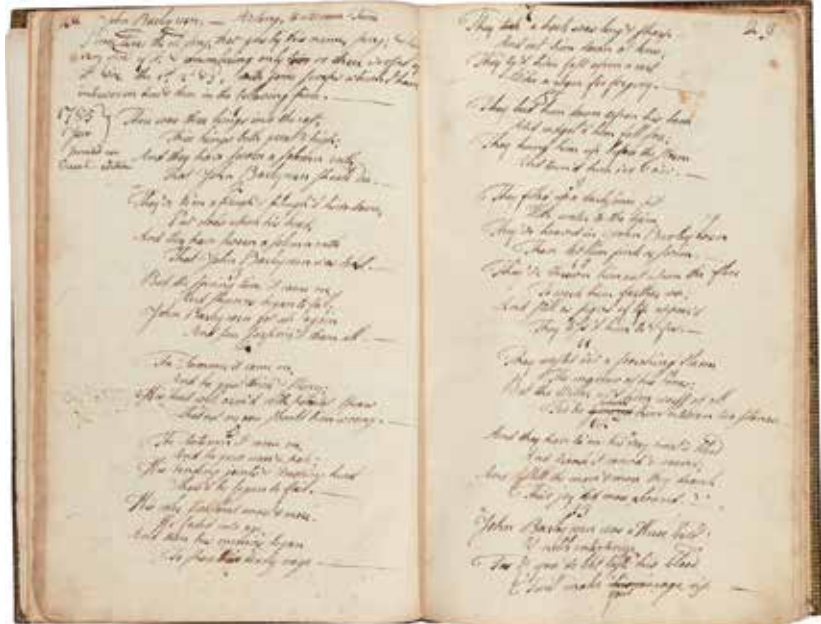 John Barleycorn. — A Song, to its own Tune
I once the old song, that goes by this name, sung;
very of it, & remembering only two or three verses of
it viz. the 1st, 2d & 3d, with some scraps which I have
interwoven here & there in the following piece. —
1785
June
There was three kings into the east,
Three kings both great & high;
And they have sworn a solemn oath
That John Barleycorn should die. —
They've ta'en a plough & plough'd him down,
Put clods upon his head,
And they have sworn a solemn oath
That John Barleycorn was dead. —
But the spring time it came on,
And showers began to fall;
John Barleycorn got up again
And sore surpris'd them all —
The Summer it came on,
And he grew thick & strong;
His head well arm'd with pointed spears
That no one should him wrong. —
The Autumn it came on,
And he grew wan & pale;
His bending joints & drooping head
Show'd he began to fail. —
His color sicken'd more & more
He faded into age,
And then his enemies began
To show their deadly rage —
They took a hook was long & sharp
And cut him down at knee,
They ty'd him fast upon a cart
Like a rogue for forgery. —
They laid him down upon his back
And cudgel'd him full sore;
They hung him up before the storm
And turn'd him o'er & o'er. —
They fill'd up a darksome pit
With water to the brim,
They've heaved in John Barleycorn
There let him sink or swim.
They've thrown him out upon the floor
To work him farther woe;
And still as signs of life appear'd
They toss'd him to & fro. —
They wasted o'er a scorching flame
The marrow of his bones;
But the Miller us'd him worst of all
For he him between two stones. —
And they have ta'en his very heart's blood
And drank it round & round;
And still the more & more they drank
Their joy did more abound.
John Barleycorn was a Hero bold
Of noble enterprise
For if you do but taste his blood
'Twill make your courage rise —